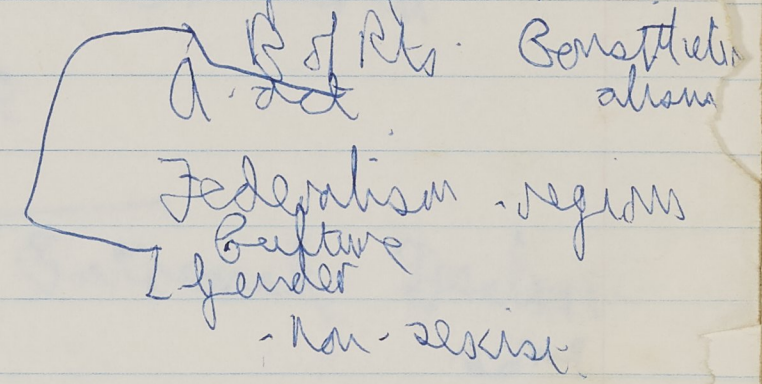 B of Rts. Constitution
A. act alism
Federalism - regions
Culture
Gender
- non-sexist.